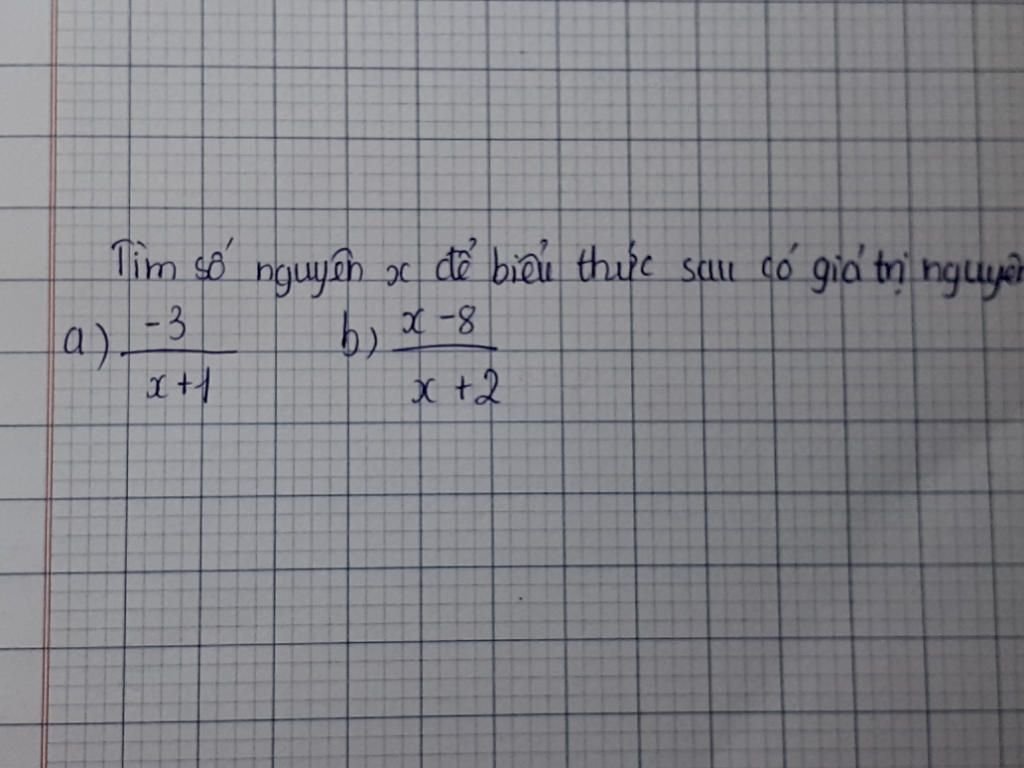 Tìm số nguyên x để biểu thức sau có giá trị nguyên
a) -3/(x+1) b) (x-8)/(x+2)